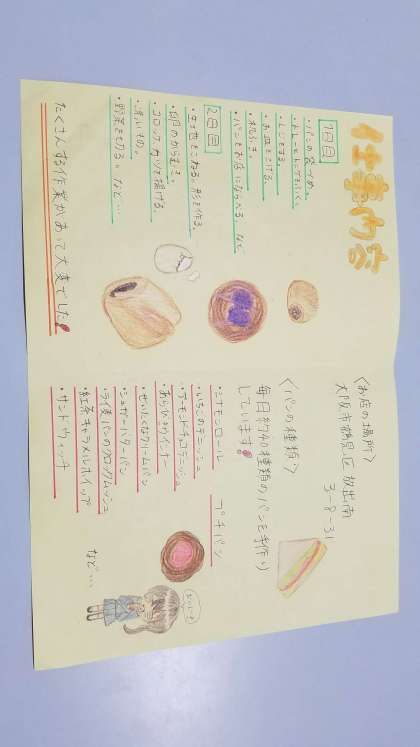 仕事内容
1日目
・パンの袋づめ。
・トレーとトングをふく。
・レジをする。
・お皿をこする。
・机ふき。
・パンをお店にならべる。など
2日目
・生地をこねる。形を作る
・卵のからむき。
・コロッケ、カツを揚げる。
・洗いもの。
・野菜を切る。など…
たくさんする作業があって大変でした!
〈お店の場所〉
大阪市鶴見区放出南
3-8-31
〈パンの種類〉
毎日約40種類のパンを手作り
しています!
・シナモンロール
・いちごのデニッシュ
・アーモンドチョコデニッシュ
・あらびきウインナー
・ぜいたくなクリームパン
・シュガーバターパン
・ライ麦パンのクロックムッシュ
・紅茶キャラメルホイップ
・サンドウィッチ
プチパン
など…